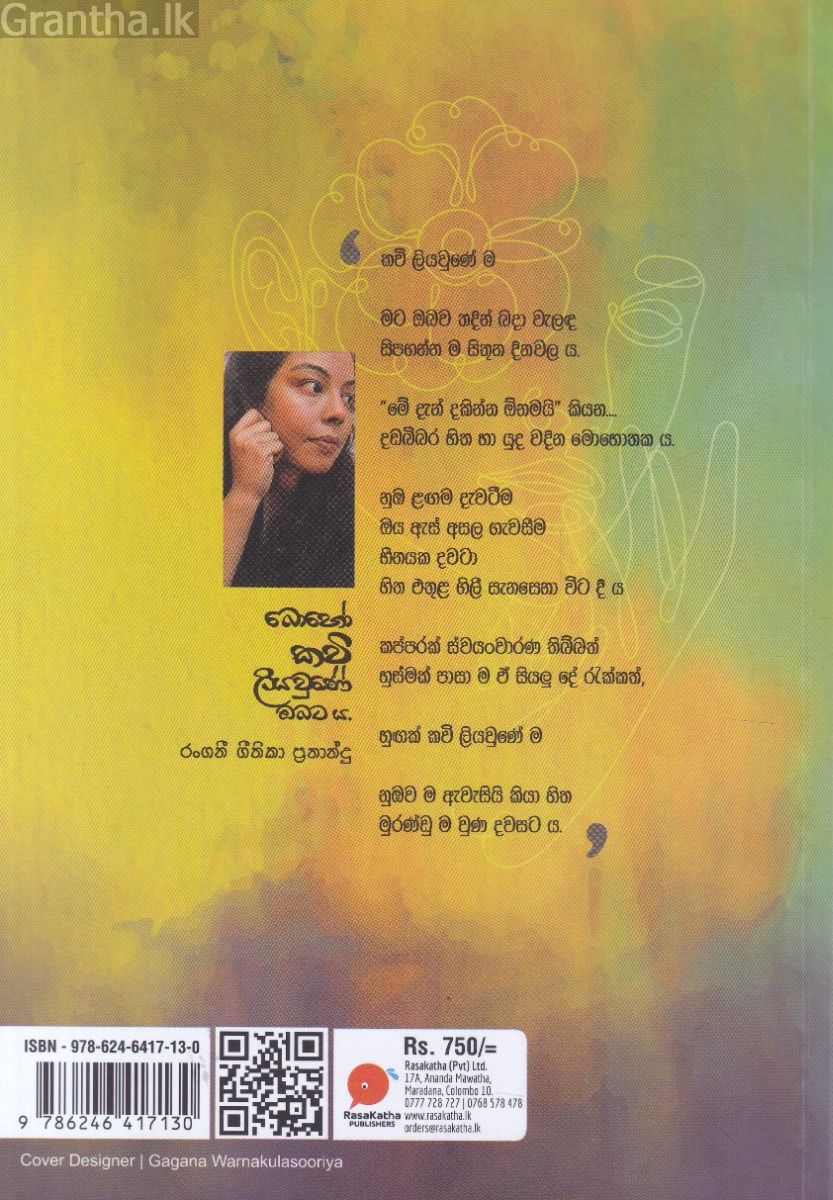 Grantha.lk
කවි ලියවුණේ ම
මට ඔබව තදින් බදා වැලඳ
සිපගන්න ම සිතුන දිනවල ය.
"මේ දැන් දකින්න ඕනමයි" කියන...
දඩබ්බර හිත හා යුද වදින මොහොතක ය.
නුඹ ළඟම දැවටීම
ඔය ඇස් අසල ගැවසීම
හීනයක දවටා
හිත එතුළ ගිලී සැනසෙනා විට දී ය
කප්පරක් ස්වයංවාරණ තිබ්බත්
හුස්මක් පාසා ම ඒ සියලු දේ රැක්කත්,
හුඟක් කවි ලියවුණේ ම
නුඹව ම ඇවැසියි කියා හිත
මුරණ්ඩු ම වුණ දවසට ය.
බොහෝ
කවි
ලියවුණේ
ඔබට ය.
රංගනී ගීතිකා ප්‍රනාන්දු
ISBN - 978-624-6417-13-0
9 786246 417130
RasaKatha
PUBLISHERS
Rs. 750/=
Rasakatha (Pvt) Ltd.
17A, Ananda Mawatha,
Maradana, Colombo 10.
0777 728 727 | 0768 578 478
www.rasakatha.lk
orders@rasakatha.lk
Cover Designer | Gagana Warnakulasooriya